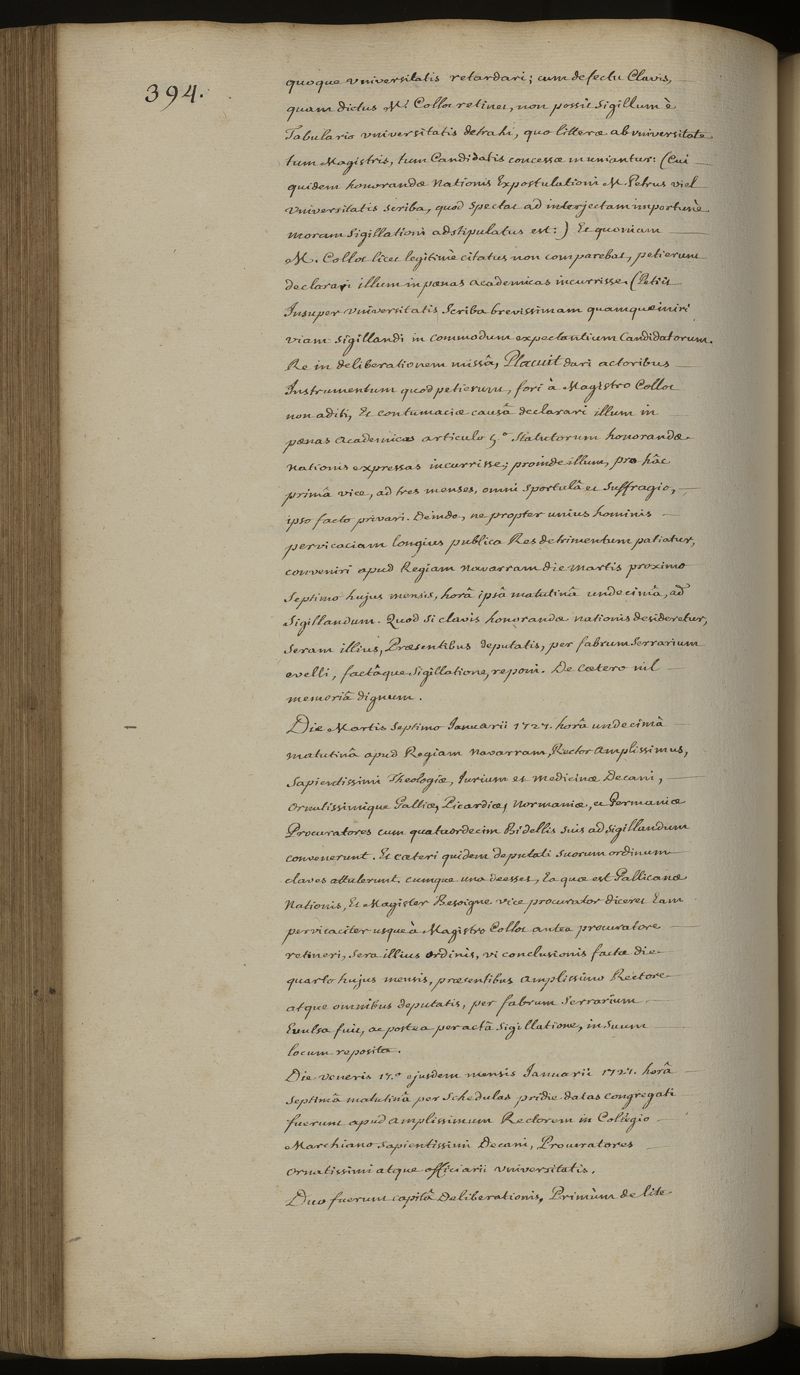 394.
quoque Vniversitatis retardari; cum defectu Clavis,
quam dictus Mr. Collot retinet, non possit Sigillum è
Tabulario vniversitatis detrahi, quo litteræ ab vniversitate
tum Magistris, tum Candidatis concessæ muniantur: (Cui
quidem honorandæ Nationis Expostulationi M. Petrus viel
Vniversitatis Scriba, quod Spectat ad interjectam importunè
moram Sigillationi adstipulatus est:) Et quoniam
M. Collot licet legitimè citatus non comparebat, petierunt
declarari illum in pœnas academicas incurrisse. (Petiit
Insuper Vniversitatis Scriba brevissimam quamque iniri
viam Sigillandi in commodum expectantium Candidatorum.
Re in deliberationem missâ, Placuit dari actoribus
Instrumentum quod petierunt, fori à Magistro Collot
non aditi, Et contumaciæ causâ declarari illum in
pœnas academicas articulo 5.o Statutorum honorandæ
Nationis expressas incurrisse; proinde illum, pro hâc
primâ vice, ad tres menses, omni Sportulâ et Suffragio,
ipso facto privari. Deinde, ne propter unius hominis
pervicaciam longius publica Res detrimentum patiatur,
conveniri apud Regiam Navarram die Martis proximo
Septimo hujus mensis, horâ ipsâ matutinâ undecimâ, ad
Sigillandum. Quod si clavis honorandæ nationis desideretur,
Seram illius, Præsentibus deputatis, per fabrum Serrarium
evelli, factâque Sigillatione, reponi. De Cætero nil
memoriâ dignum.
Die Martis Septimo Ianuarii 1727. horâ undecimâ
matutinâ apud Regiam Navarram, Rector Amplissimus,
Sapientissimi Theologiæ, Iurium et Medicinæ Decani,
Ornatissimique Galliæ, Picardiæ, Normaniæ, et Germaniæ
Procuratores cum quatuordecim Bidellis suis ad Sigillandum
convenerunt. Et cæteri quidem deputati Suorum ordinum
claves attulerunt. cumque una deesset, Ea quæ est Gallicanæ
Nationis, Et Magister Besoigne vice procurator diceret Eam
pervicaciter usque à Magistro Collot antea procuratore
retineri, Sera illius ordinis, vi conclusionis factæ die
quarto hujus mensis, præsentibus Amplissimo Rectore
atque omnibus deputatis, per fabrum Serrarium
Evulsa fuit, ac postea peractâ Sigillatione, in Suum
locum reposita.
Die Veneris 17.o ejusdem mensis Ianuarii 1727. horâ
Septimâ matutinâ per Schedulas pridie datas congregati
fuerunt apud Amplissimum Rectorem in Collegio
Marchiano Sapientissimi Decani, Procuratores
ornatissimi atque officiarii Vniversitatis.
Duo fuerunt capita Deliberationis, Primùm de lite